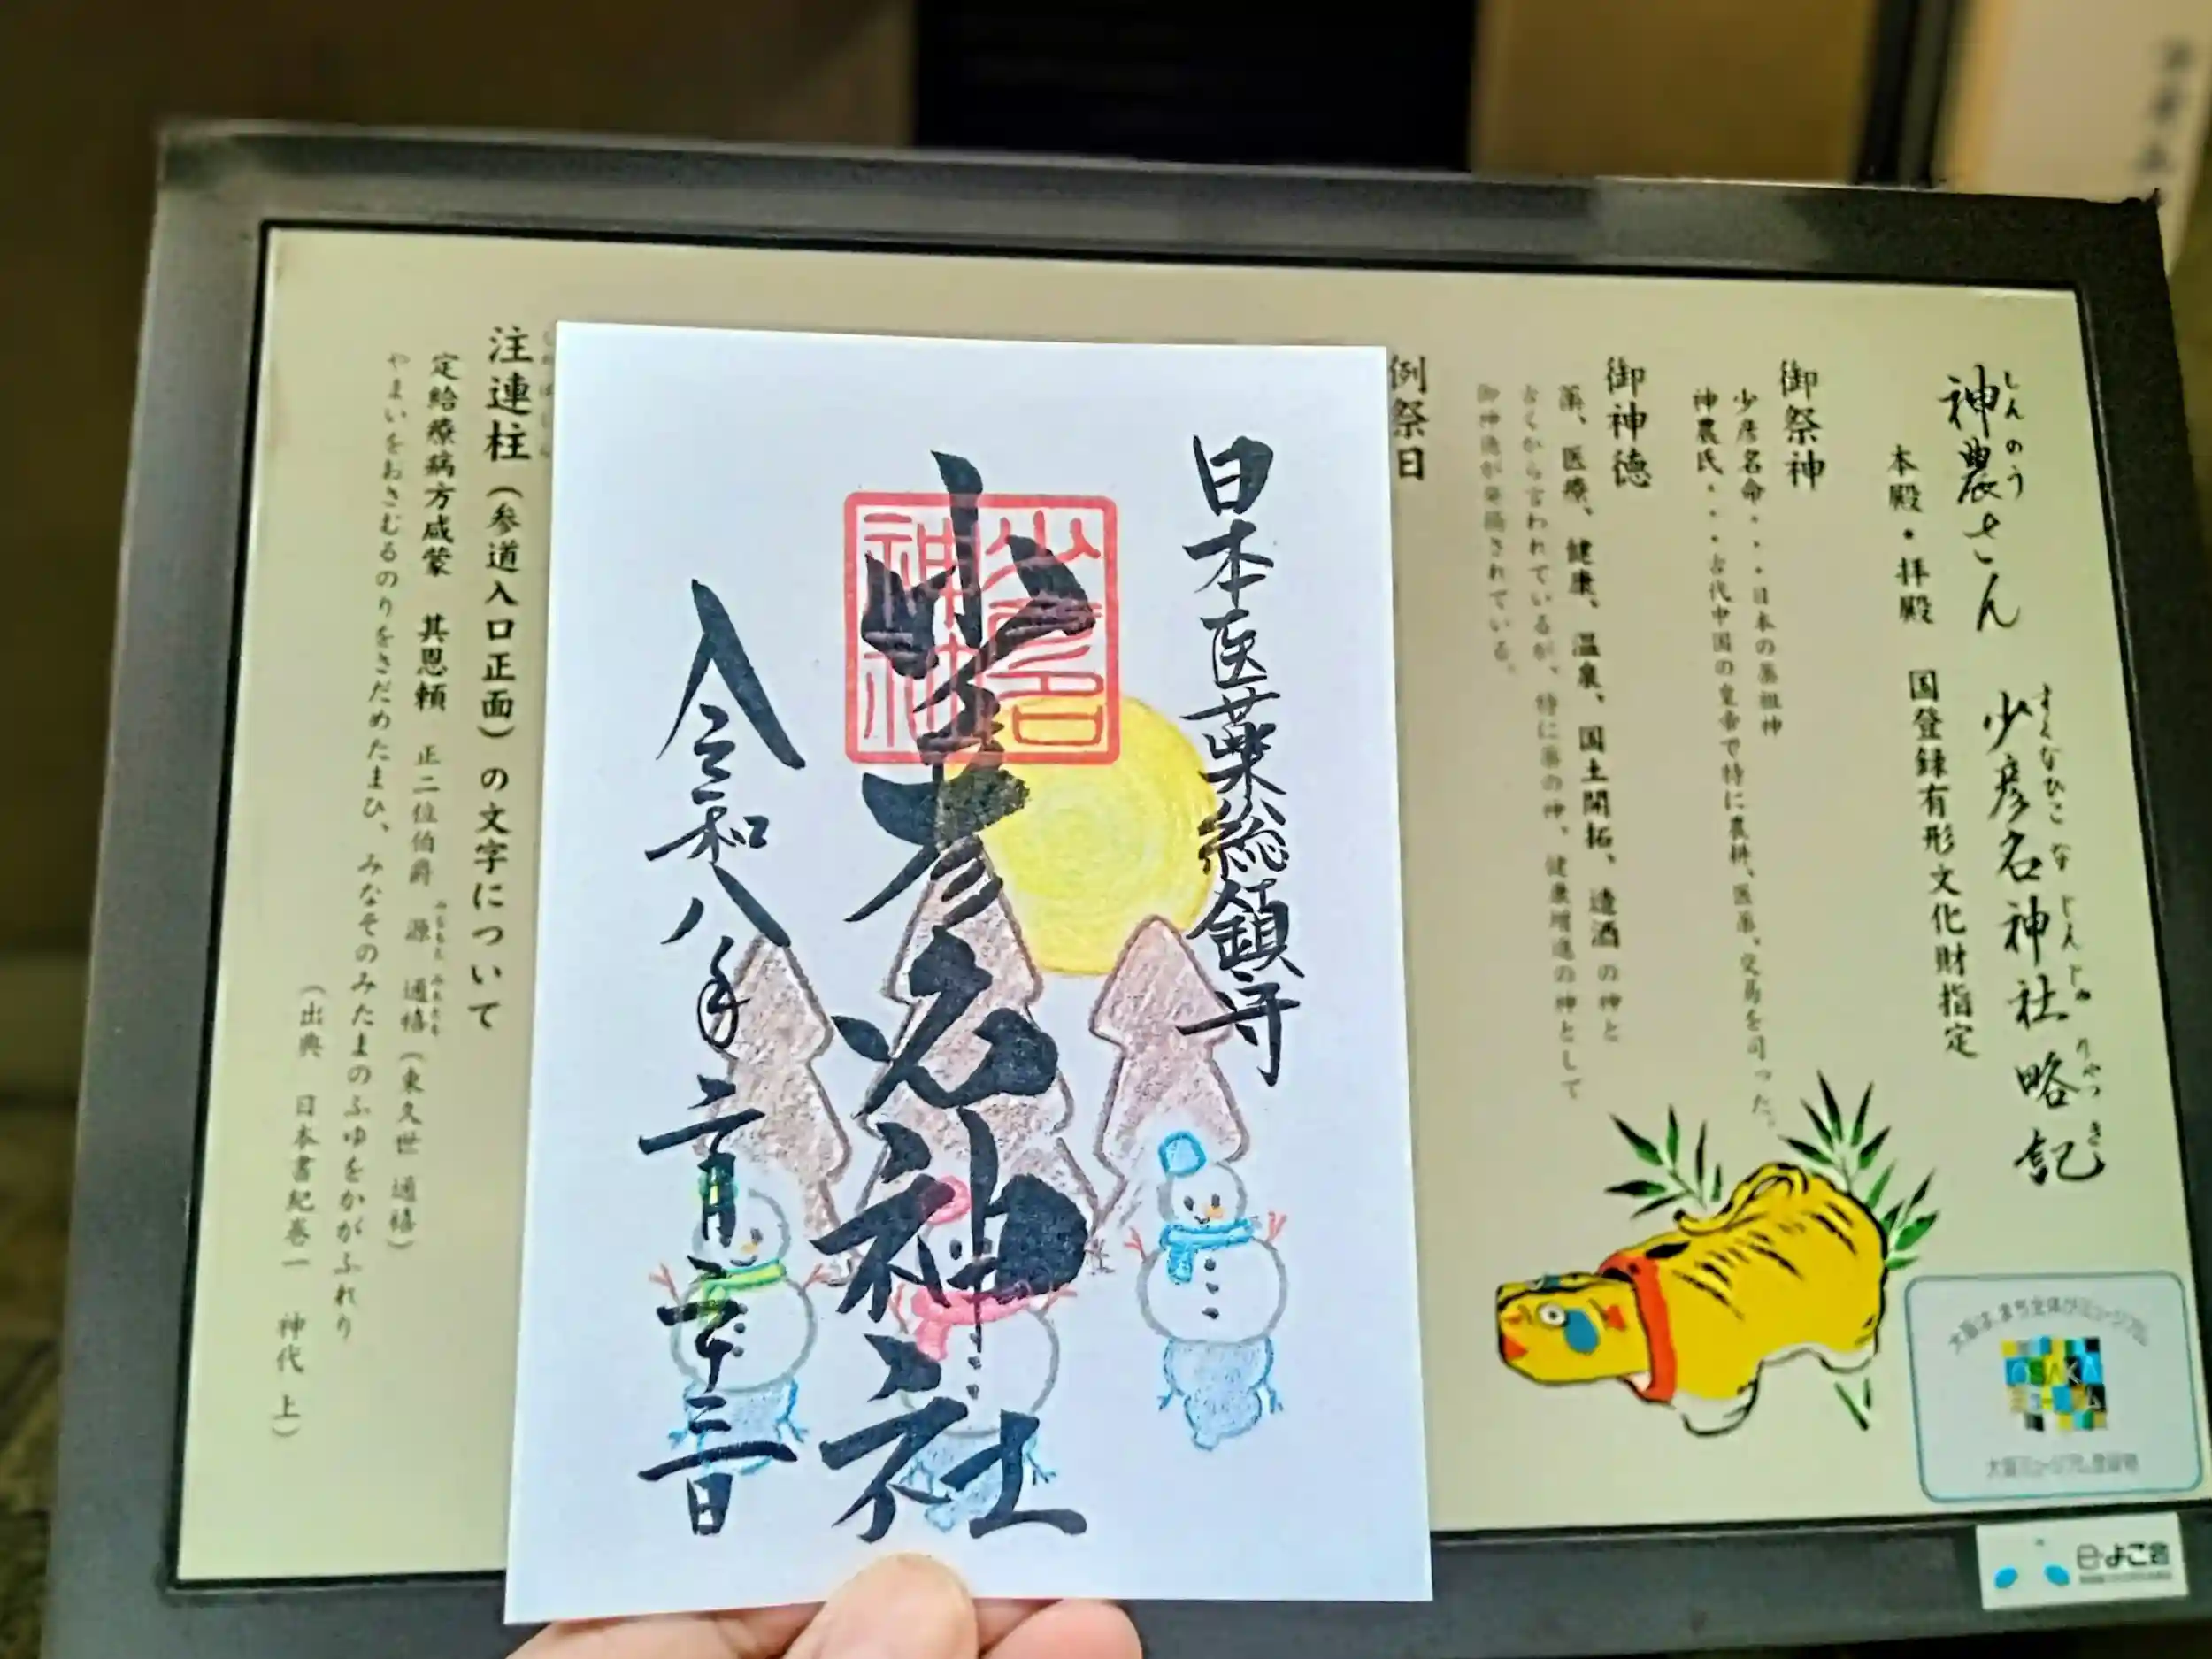 神農さん 少彦名神社 略記
しんのう すくなひこなじんじゃ りゃっき
本殿・拝殿 国登録有形文化財指定
御祭神
少彦名命・・・日本の薬祖神
神農氏・・・古代中国の皇帝で特に農耕、医薬、交易を司った。
御神徳
薬、医療、健康、温泉、国土開拓、造酒の神と
古くから言われているが、特に薬の神、健康増進の神として
御神徳が発揚されている。
例祭日
日本医薬総鎮守
少彦名神社
少彦名神社
令和八年二月二十三日
注連柱(参道入口正面)の文字について
定給療病方咸蒙 其恩頼 正二位伯爵 源 通禧(東久世 通禧)
みなもと みちとみ
やまいをおさむるのりをさだめたまひ、みなそのみたまのふゆをかがふれり
(出典 日本書紀巻一 神代 上)
大阪は、まち全体がミュージアム
OSAKA
ミュージアム
大阪ミュージアム登録物